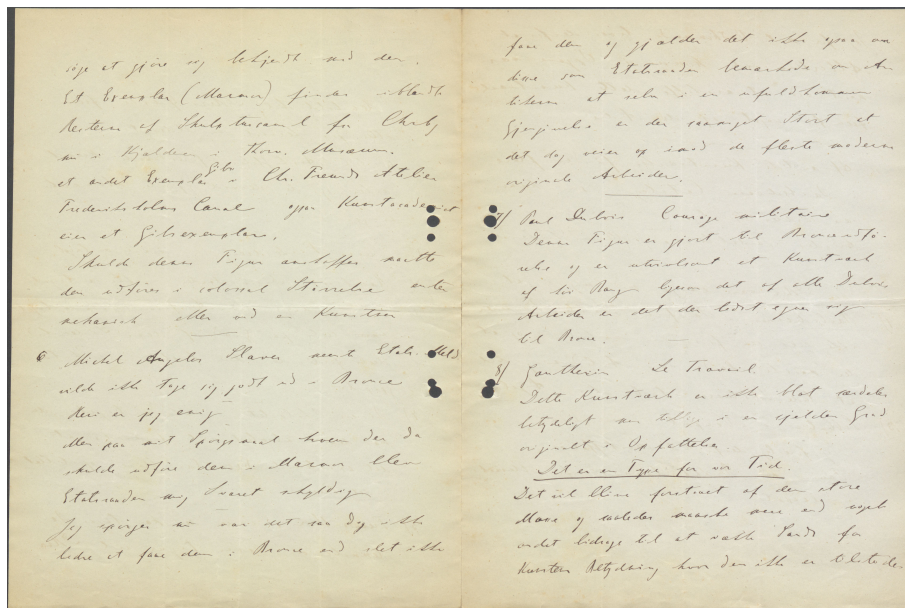 søge at gjøre sig bekjendt med den.
Et Exemplar (Marmor) findes iblandt
Resterne af Skulptursaml for Chrbg
nu i Kjælderen i Thorv. Museum.
et andet Exemplar Gibs i Chr. Freunds Atelier
Frederiksholms Canal ogsaa Kunstacademiet
eier et Gibsexemplar.
Skulde denne Figur anskaffes maatte
den udføres i colossal Størrelse enten
mekanisk eller ved en Kunstner
6 Michel Angelos Slaver meent Etatsr. Meld
vilde ikke tage sig godt ud i Bronce
Heri er jeg enig
Men paa mit Spørgsmaal hvem der da
skulde udføre dem i Marmor blev
Etatsraaden mig Svaret skyldig
Jeg spørger nu var det saa dog ikke
bedre at faae dem i Bronce end slet ikke
faae dem og gjælder det ikke ogsaa om
disse som Etatsraaden bemærkede om An
tiken at selv i en ufuldkommen
Gjengivelse er der saameget Stort at
det dog veier op imod de fleste moderne
originale Arbeider.
7/ Paul Dubois Courage militaire
Denne Figur er gjort til Bronceudfø-
relse og er utvivlsomt et Kunstværk
af før Rang ligesom det af alle Dubois
Arbeider er det der bedst egner sig
til Bronce.
8/ Gautherin Le Travail
Dette Kunstværk er ikke blot særdeles
betydeligt men tillige i en sjelden Grad
originalt i Opfattelse.
Det er en Type for vor Tid.
Det vil blive forstaaet af den store
Masse og saaledes maaske mere end noget
andet bidrage til at vække Sands for
Kunstens Betydning hvor den ikke er tilstede.